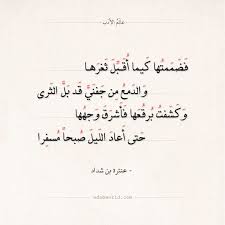 عالم الأدب
فَضَمَمتُها كَيما أُقَبِّلَ ثَغرَها
وَالدَمعُ مِن جَفنَيَّ قَد بَلَّ الثَرى
وَكَشَفتُ بُرقُعَها فَأَشرَقَ وَجهُها
حَتى أَعادَ اللَيلَ صُبحاً مُسفِرا
- عنترة بن شداد -
adabworld.com